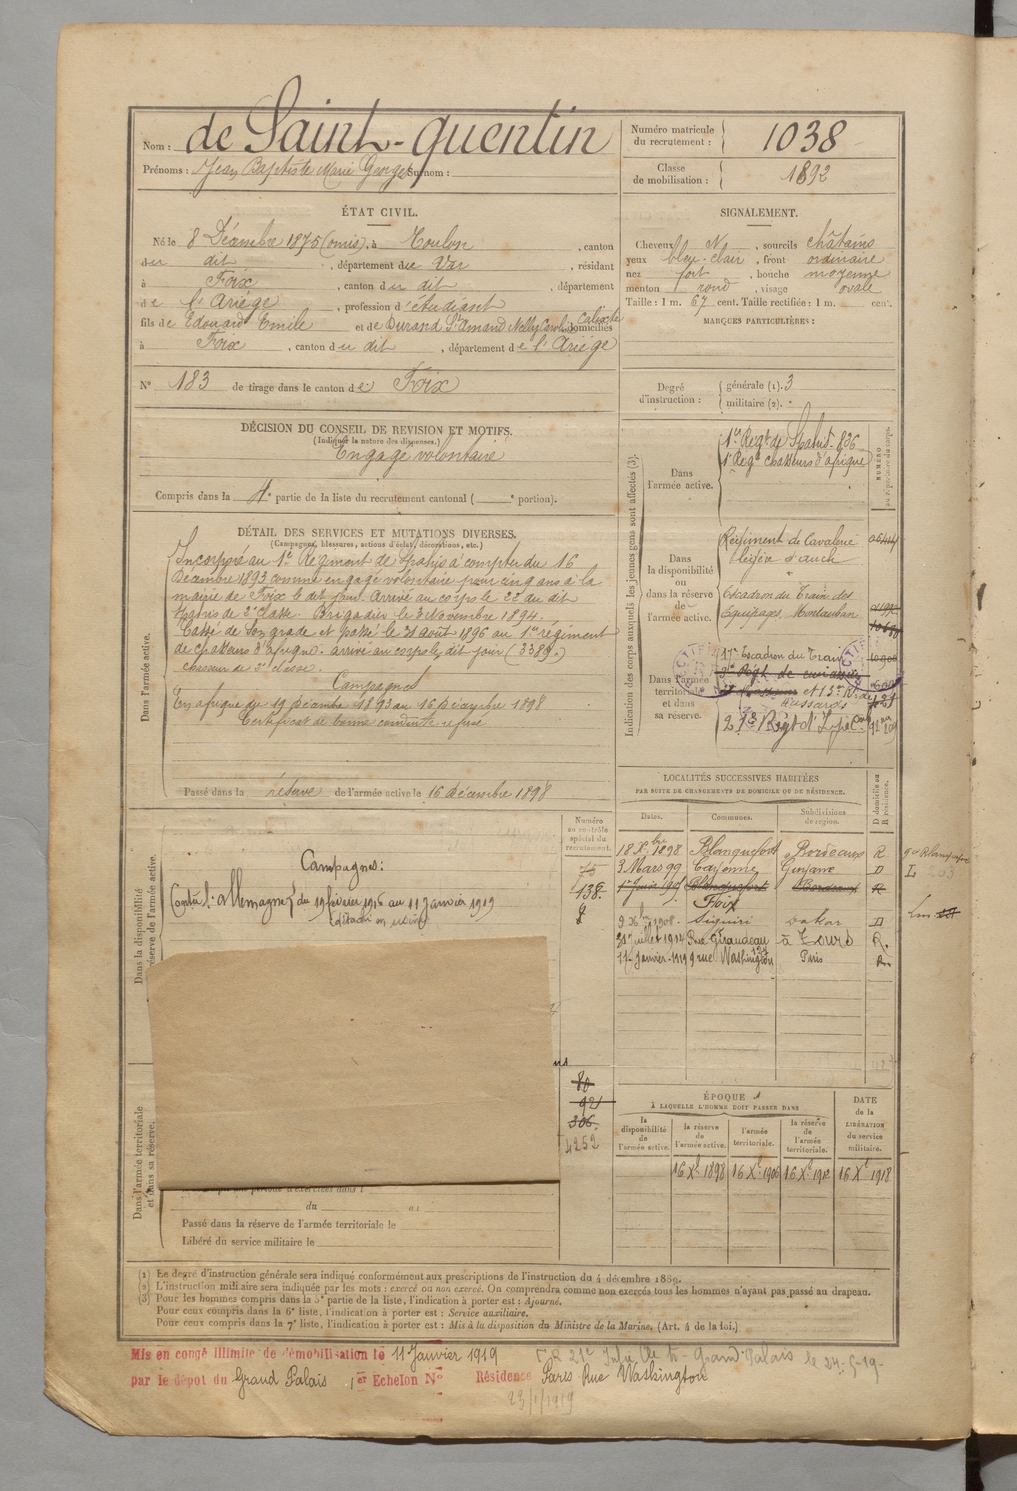 Nom : de Saint-quentin
Prénoms : Jean Baptiste Marie Georges Surnom :
Numéro matricule du recrutement : 1038
Classe de mobilisation : 1892
ÉTAT CIVIL.
Né le 8 Décembre 1875 (omis), à Toulon, canton
du dit, département du Var, résidant
à Foix, canton du dit, département
de l'Ariége, profession d'étudiant
fils de Edouard Emile et de Durand St Amand Nelly Carol. Calixte domiciliés
à Foix, canton du dit, département de l'Ariége
N° 183 de tirage dans le canton de Foix
SIGNALEMENT.
Cheveux N, sourcils châtains
yeux bleu-clair, front ordinaire
nez fort, bouche moyenne
menton rond, visage ovale
Taille : 1 m. 67 cent. Taille rectifiée : 1 m. cent.
MARQUES PARTICULIÈRES :
Degré d'instruction : générale (1). 3
militaire (2).
DÉCISION DU CONSEIL DE REVISION ET MOTIFS.
(Indiquer la nature des dispenses.)
Engagé volontaire
Compris dans la 4e partie de la liste du recrutement cantonal ( e portion).
DÉTAIL DES SERVICES ET MUTATIONS DIVERSES.
(Campagnes, blessures, actions d'éclat, décorations, etc.)
Dans l'armée active.
Incorporé au 1er Régiment de Spahis à compter du 16
Décembre 1893 comme engagé volontaire pour cinq ans à la
mairie de Foix le dit jour. Arrivé au corps le 22 du dit
Spahis de 2e classe. Brigadier le 3 Novembre 1894.
Cassé de son grade et passé le 31 août 1896 au 1er régiment
de chasseurs d'afrique. arrivé au corps le dit jour (3389.)
chasseur de 2e classe.
Campagnes
En afrique du 19 Décembre 1893 au 16 Décembre 1898
Certificat de bonne conduite refusé
Passé dans la réserve de l'armée active le 16 décembre 1898
Indication des corps auxquels les jeunes gens sont affectés (3).
NUMÉRO au répertoire du corps.
Dans l'armée active.
1er Regt de Spahis. 836
1er Regt chasseurs d'afrique
Dans la disponibilité ou dans la réserve de l'armée active.
Régiment de Cavalerie
légère d'auch
Escadron du Train des
Equipages Montauban
Dans l'armée territoriale et dans sa réserve.
17e Escadron du Train
9e Régt de cuirassiers
et 13e
Hussards
Numéro au contrôle spécial du recrutement.
75
138
Dans la disponibilité
réserve de l'armée active.
Campagnes :
Contre l'allemagne du 19 février 1916 au 11 janvier 1919
détaché en usine
LOCALITÉS SUCCESSIVES HABITÉES
PAR SUITE DE CHANGEMENTS DE DOMICILE OU DE RÉSIDENCE.
Dates. Communes. Subdivisions de région. D domicile ou R résidence.
18 Xbre 1898 Blanquefort Bordeaux R
3 Mars 99 Cayenne Guyane D
Blanquefort Bordeaux R
Foix
1908. Siguiri Dakar D
31 Juillet 1914 Rue Giraudeau à Tours R.
11 janvier 1919 9 rue Washington Paris R.
80
921
306
4252
Dans l'armée territoriale
et dans sa réserve.
du au
Passé dans la réserve de l'armée territoriale le
Libéré du service militaire le
ÉPOQUE
À LAQUELLE L'HOMME DOIT PASSER DANS
la disponibilité de l'armée active.
la réserve de l'armée active.
l'armée territoriale.
la réserve de l'armée territoriale.
DATE de la LIBÉRATION du service militaire.
16 Xe 1898 16 Xe 1906 16 Xe 1912 16 Xe 1918
(1) Le degré d'instruction générale sera indiqué conformément aux prescriptions de l'instruction du 4 décembre 1889.
(2) L'instruction militaire sera indiquée par les mots : exercé ou non exercé. On comprendra comme non exercés tous les hommes n'ayant pas passé au drapeau.
(3) Pour les hommes compris dans la 5e partie de la liste, l'indication à porter est : Ajourné.
Pour ceux compris dans la 6e liste, l'indication à porter est : Service auxiliaire.
Pour ceux compris dans la 7e liste, l'indication à porter est : Mis à la disposition du Ministre de la Marine. (Art. 4 de la loi.)
Mis en congé illimité de démobilisation le 11 Janvier 1919
par le dépôt du Grand Palais 1er Echelon N° Résidence Paris Rue Washington
Grand Palais le 24-5-19-
23/1/1919